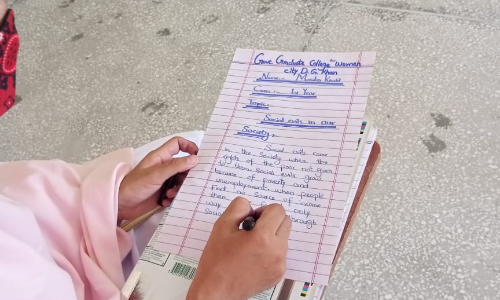 Govt Graduate College for Women
city D.G. Khan
Name:-
Class:- 1st Year
Topic
Social evils in our
Society:
Social evils come
in the Society when the
rights of the poor not given
to them. Social evils grow
because of poverty and
unemployment when people
Find no source of income
then only
way through